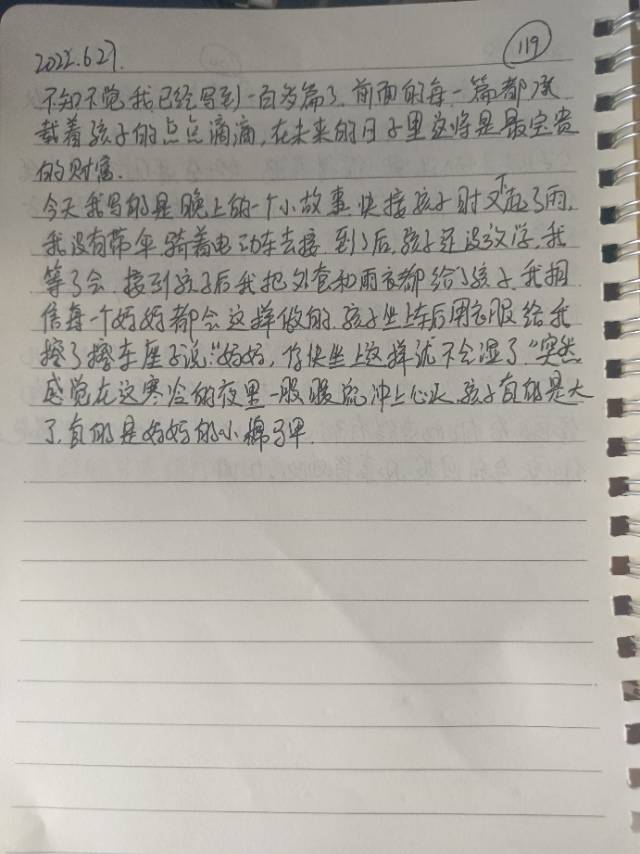 2022.6.27.
119
不知不觉我已经写到一百多篇了.前面的每一篇都承
载着孩子的点点滴滴,在未来的日子里这将是最宝贵
的财富.
今天我写的是晚上的一个小故事.快接孩子时又下起了雨,
我没有带伞.骑着电动车去接.到了后,孩子还没放学.我
等了会.接到孩子后我把外套和雨衣都给了孩子.我相
信每一个妈妈都会这样做的.孩子坐上车后用衣服给我
擦了擦车座子说:"妈妈,你快坐上这样就不会湿了"突然
感觉在这寒冷的夜里一股暖流冲上心头.孩子真的是大
了,真的是妈妈的小棉袄.